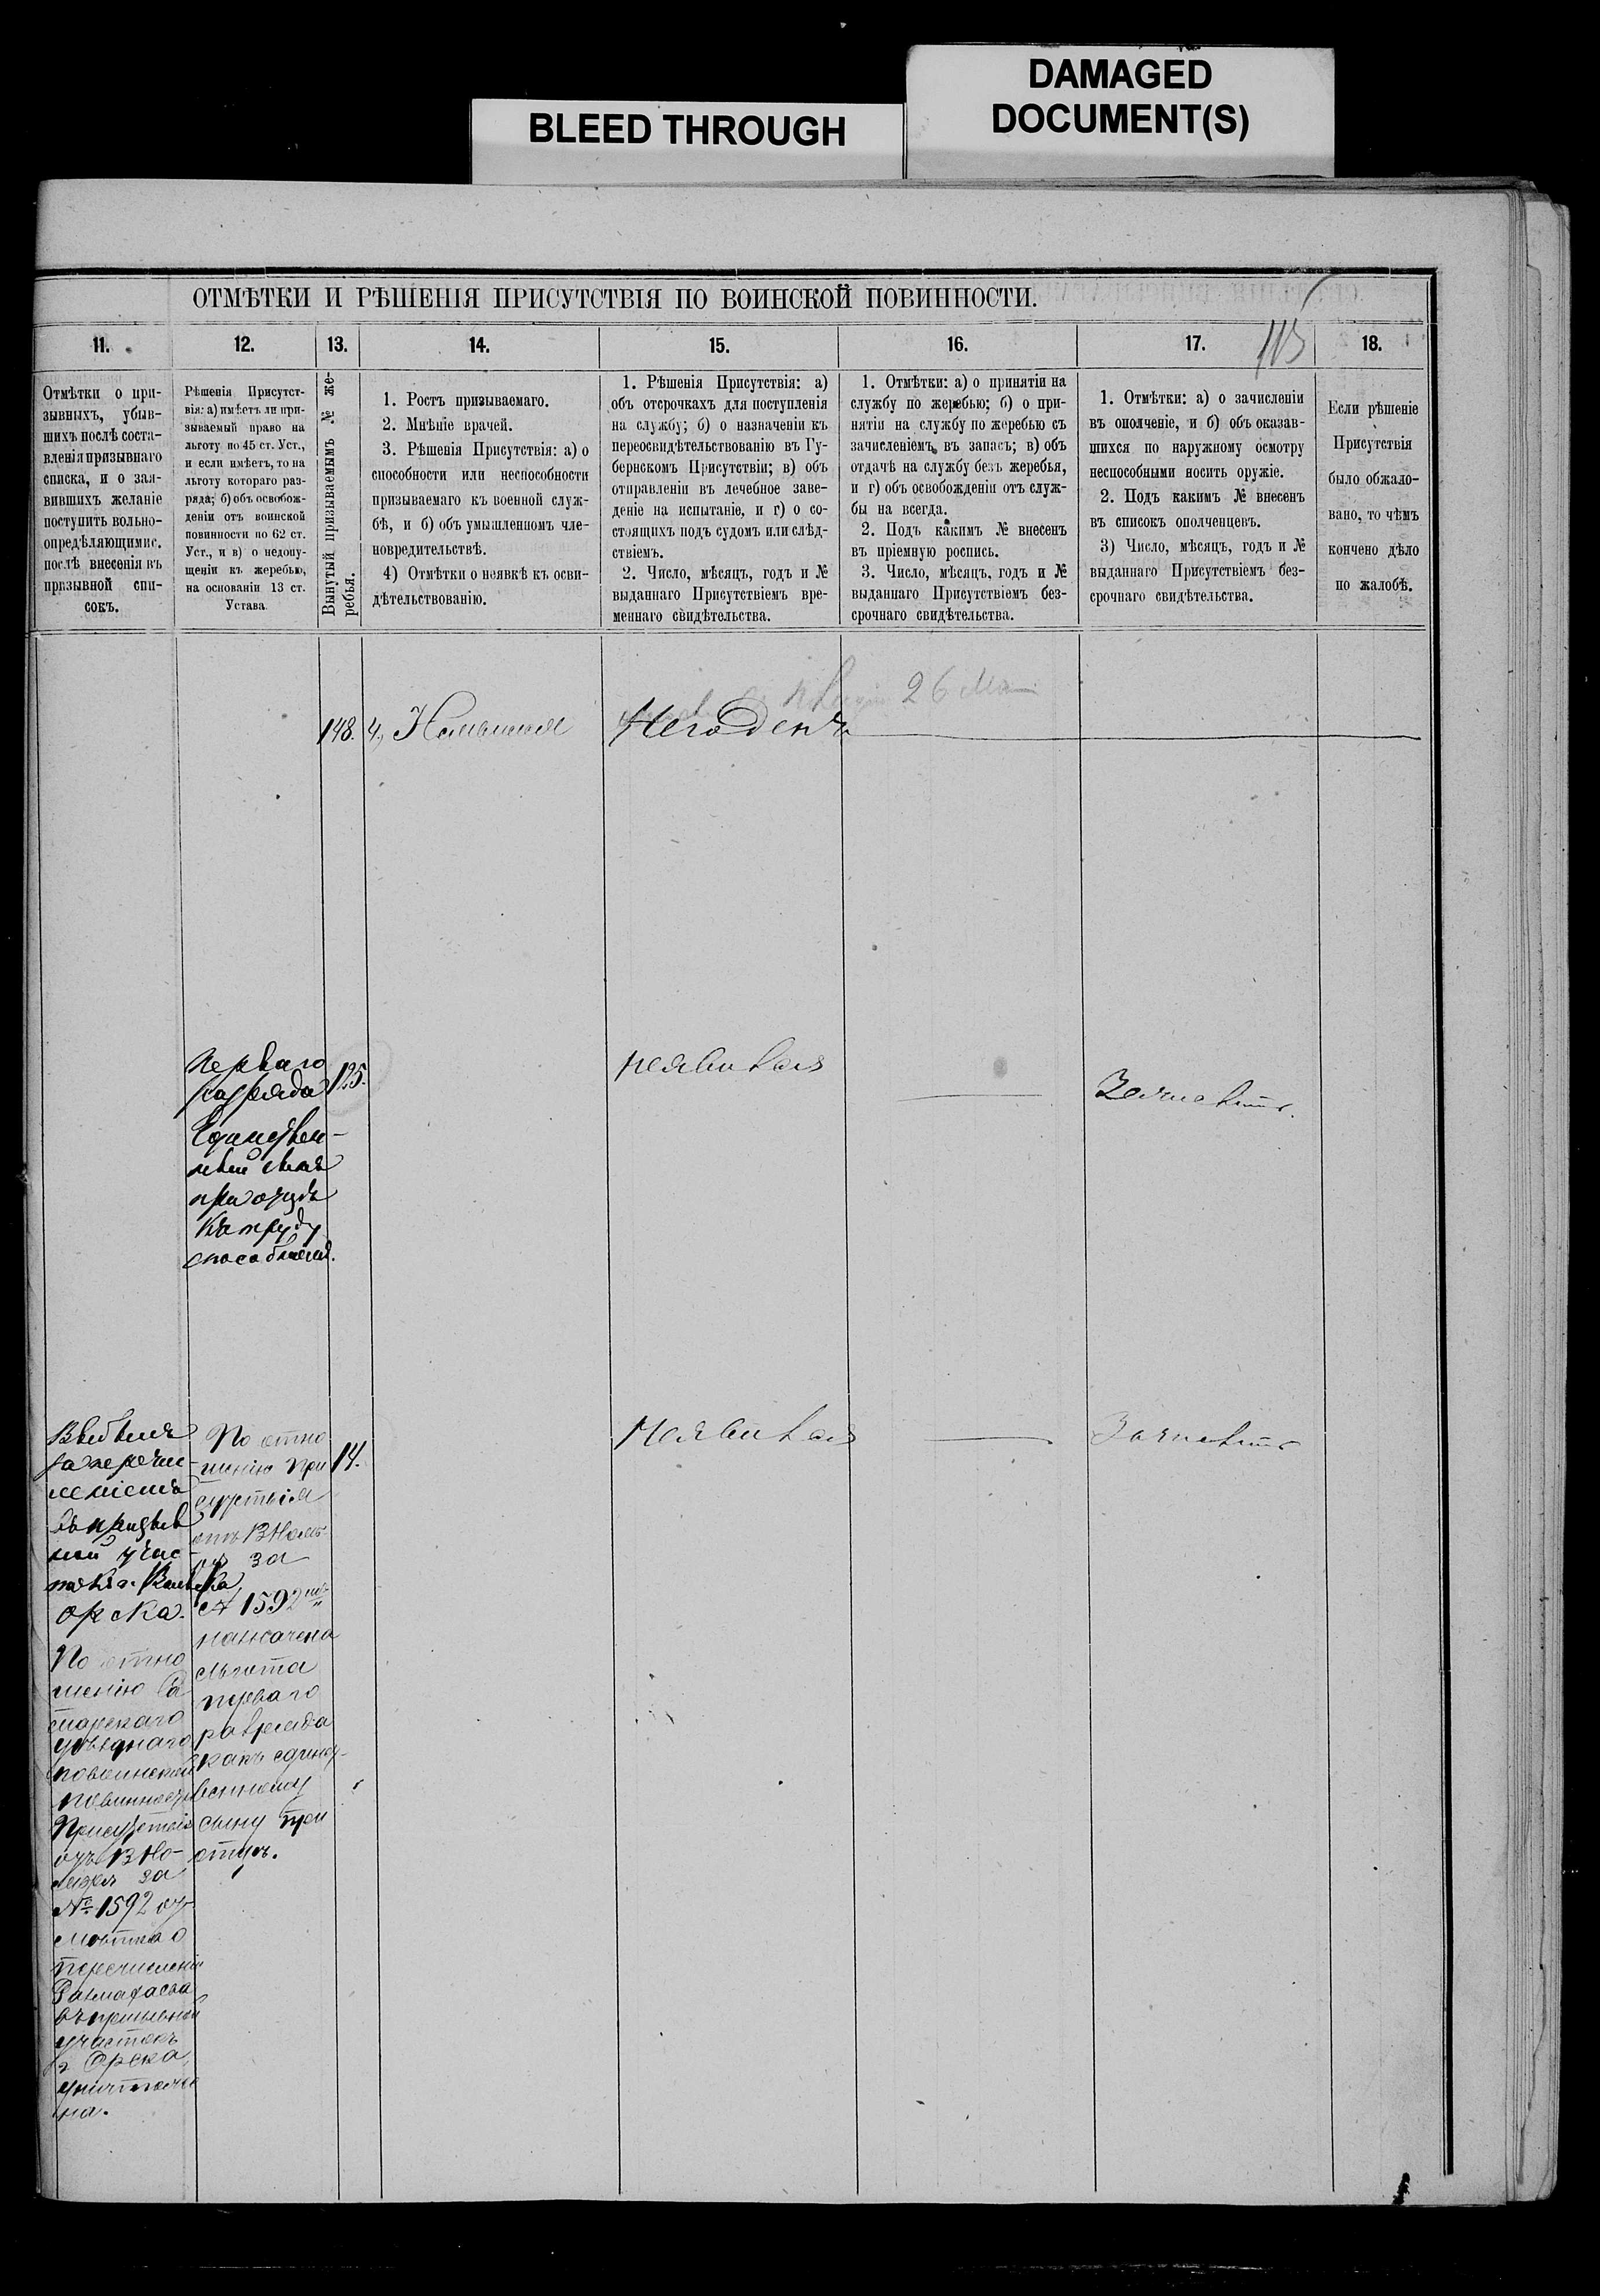 BLEED THROUGH
DAMAGED
DOCUMENT(S)
ОТМѢТКИ И РѢШЕНІЯ ПРИСУТСТВІЯ ПО ВОИНСКОЙ ПОВИННОСТИ.
115
11.
12.
13.
14.
15.
16.
17.
18.
Отмѣтки о при-
зывныхъ, убыв-
шихъ послѣ соста-
вленія призывнаго
списка, и о зая-
вившихъ желаніе
поступить вольно-
опредѣляющимис.
послѣ внесенія въ
призывной спи-
сокъ.
Рѣшенія Присутст-
вія: а) имѣетъ ли при-
зываемый право на
льготу по 45 ст. Уст.,
и если имѣетъ, то на
льготу котораго раз-
ряда; б) объ освобож-
деніи отъ воинской
повинности по 62 ст.
Уст., и в) о недопу-
щеніи къ жеребью,
на основаніи 13 ст.
Устава.
Вынутый призываемымъ № же-
ребья.
1. Ростъ призываемаго.
2. Мнѣніе врачей.
3. Рѣшенія Присутствія: а) о
способности или неспособности
призываемаго къ военной служ-
бѣ, и б) объ умышленномъ чле-
новредительствѣ.
4) Отмѣтки о неявкѣ къ осви-
дѣтельствованію.
1. Рѣшенія Присутствія: а)
объ отсрочкахъ для поступленія
на службу; б) о назначеніи къ
переосвидѣтельствованію въ Гу-
бернскомъ Присутствіи; в) объ
отправленіи въ лечебное заве-
деніе на испытаніе, и г) о со-
стоящихъ подъ судомъ или слѣд-
ствіемъ.
2. Число, мѣсяцъ, годъ и №
выданнаго Присутствіемъ вре-
меннаго свидѣтельства.
1. Отмѣтки: а) о принятіи на
службу по жеребью; б) о при-
нятіи на службу по жеребью съ
зачисленіемъ, въ запасъ; в) объ
отдачѣ на службу безъ жеребья,
и г) объ освобожденіи отъ служ-
бы на всегда.
2. Подъ какимъ № внесенъ
въ пріемную роспись.
3. Число, мѣсяцъ, годъ и №
выданнаго Присутствіемъ без-
срочнаго свидѣтельства.
1. Отмѣтки: а) о зачисленіи
въ ополченіе, и б) объ оказав-
шихся по наружному осмотру
неспособными носить оружіе.
2. Подъ какимъ № внесенъ
въ списокъ ополченцевъ.
3) Число, мѣсяцъ, годъ и №
выданнаго Присутствіемъ без-
срочнаго свидѣтельства.
Если рѣшеніе
Присутствія
было обжало-
вано, то чѣмъ
кончено дѣло
по жалобѣ.
148.
4,
Негоденъ
26
Перваго
разряда
Единствен-
ный сынъ
при отцѣ
къ труду
способномъ.
125.
неявился
Выбылъ
за перечи-
сленіемъ
въ призыв
ной учас-
орска.
По отно
шенію Са
марскаго
уѣзднаго
по воинской
повинности
Присутствія
отъ 13 Но-
ября за
№ 1592 от
мѣтка о
перечисленіи
въ призывной
участокъ
г Орска,
уничтоже
на.
По отно
шенію При
сутствія
отъ 13 Нояб
ря за
№ 1592
назначена
льгота
перваго
разряда
какъ единст
венному
сыну при
отцѣ.
14.
Неявился